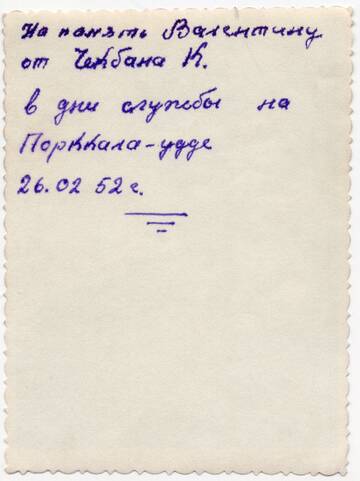 На память Валентину
от Чекбана К.
в дни службы на
Порккала-удде
26.02 52 г.